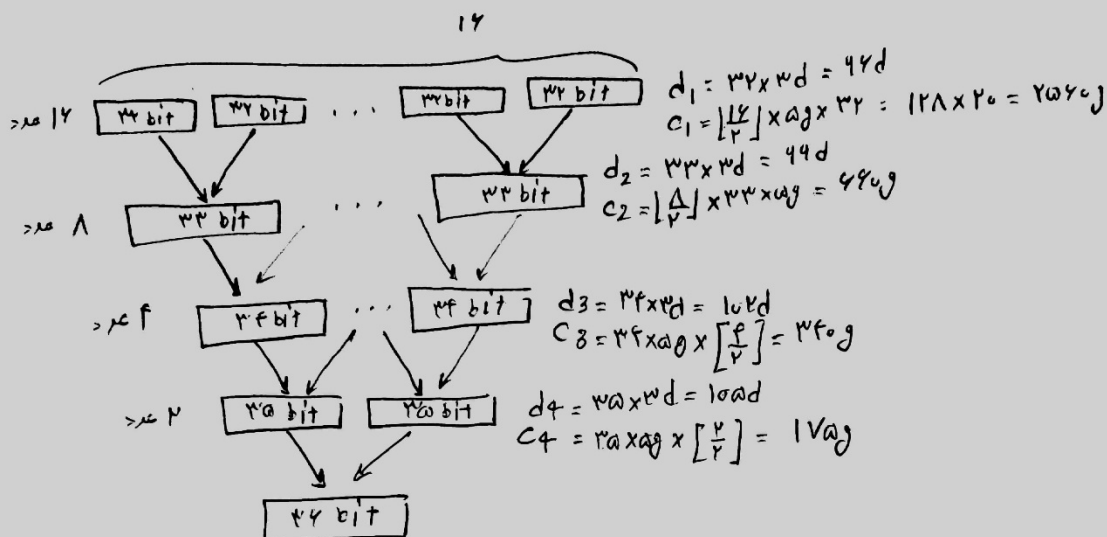 ۱۶
۱۶ عدد ۳۲ bit ۳۲ bit ... ۳۲ bit ۳۲ bit
d1 = ۳۲×۳d = ۹۶d
C1 = ⌊۱۶/۲⌋ × ۵g × ۳۲ = ۱۲۸ × ۲۰ = ۲۵۶۰g
۸ عدد ۳۳ bit ... ۳۳ bit
d2 = ۳۳×۳d = ۹۹d
C2 = ⌊۸/۲⌋ × ۳۳ × ۵g = ۶۶۰g
۴ عدد ۳۴ bit ... ۳۴ bit
d3 = ۳۴×۳d = ۱۰۲d
C3 = ۳۴×۵g × [۴/۲] = ۳۴۰g
۲ عدد ۳۵ bit ۳۵ bit
d4 = ۳۵×۳d = ۱۰۵d
C4 = ۳۵×۵g × [۲/۲] = ۱۷۵g
۳۶ bit